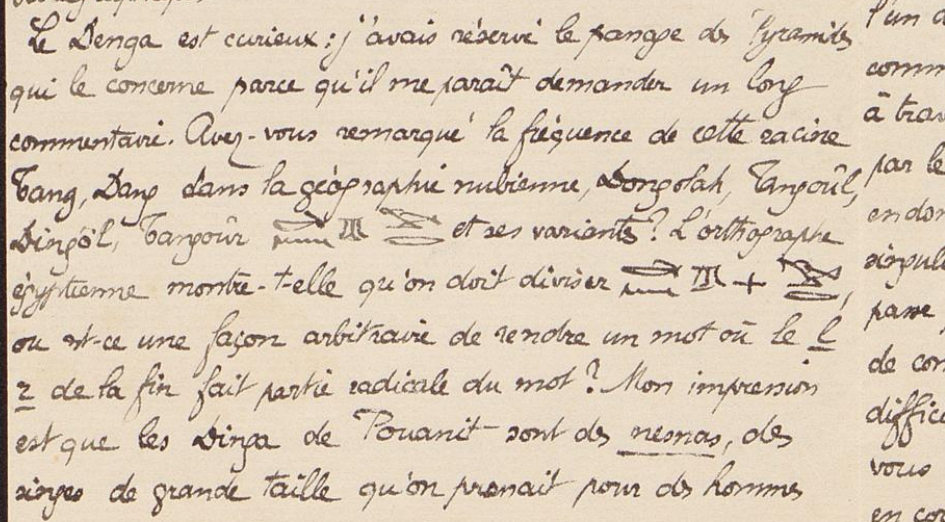 Le Denga est curieux : j'avais réservé le passage des Pyramides
qui le concerne parce qu'il me paraît demander un long
commentaire. Avez-vous remarqué la fréquence de cette racine
Tang, Dang dans la géographie nubienne, Dongolah, Tangoûl,
Dingöl, Tangoûr et ses variantes ? L'orthographe
égyptienne montre-t-elle qu'on doit diviser + ,
ou est-ce une façon arbitraire de rendre un mot où le l
r de la fin fait partie radicale du mot ? Mon impression
est que les Dinga de Pouanit sont des nesnas, des
singes de grande taille qu'on prenait pour des hommes
l'un
comm
à trav
par le
en don
singul
parce
de con
diffic
vous
en co